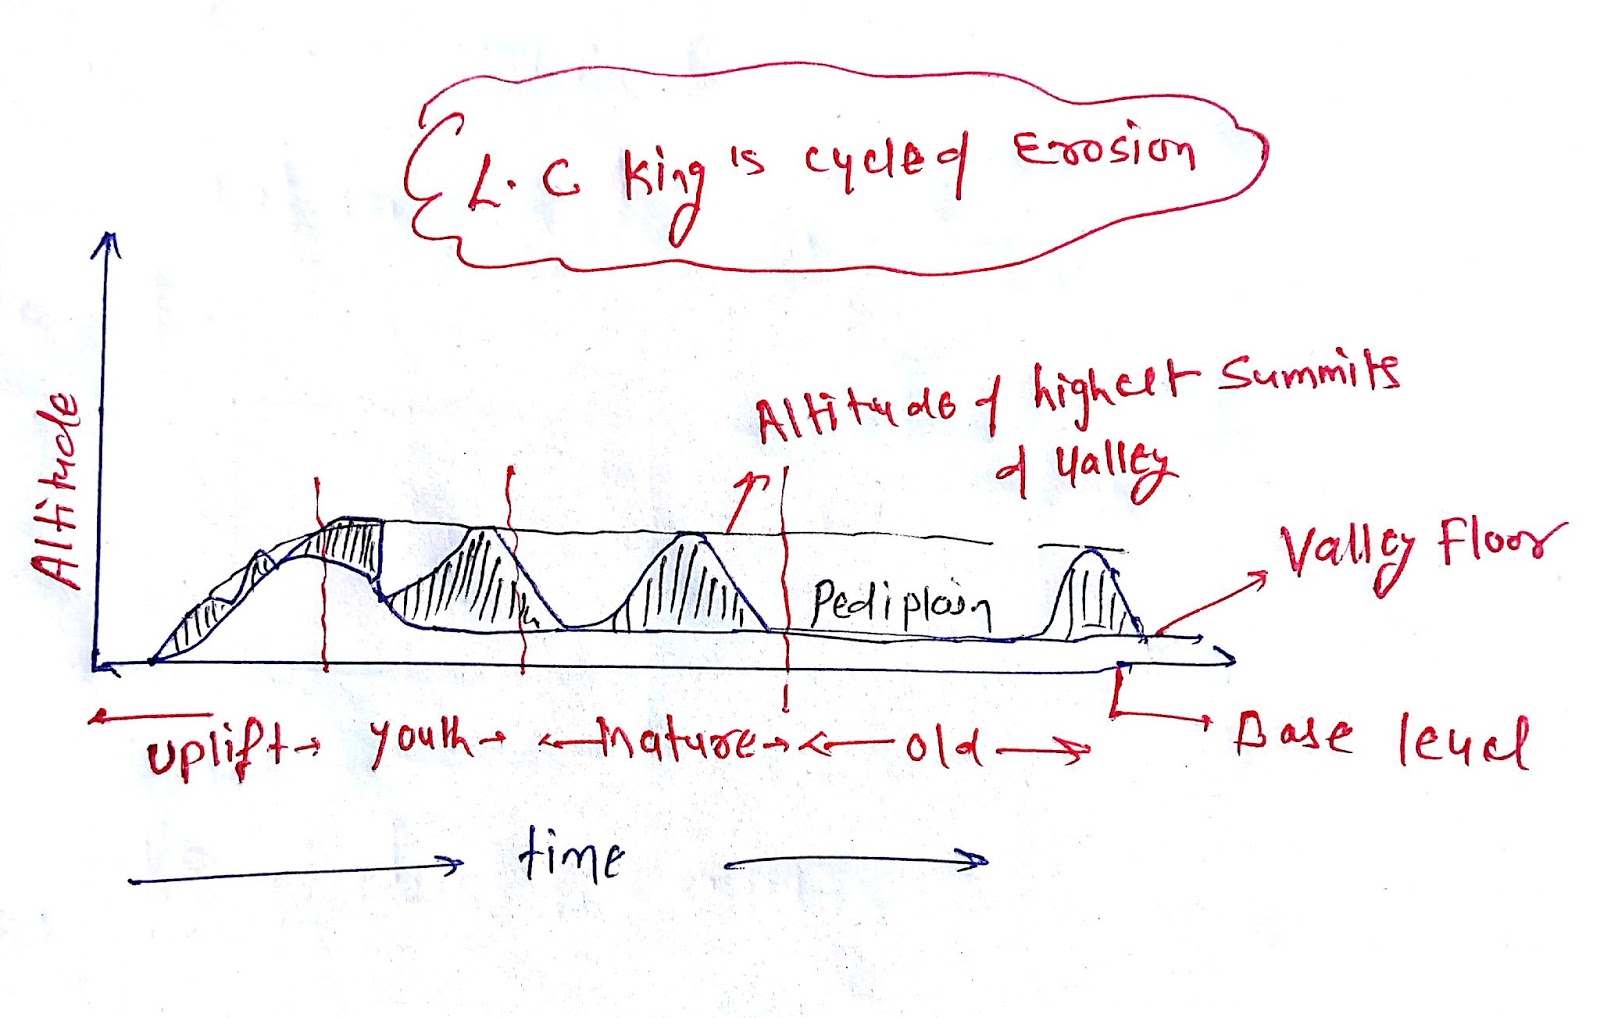 L. C King's cycle of Erosion
Altitude
Altitude of highest Summits
of Valley
Valley Floor
Pediplain
Uplift youth mature old
Base level
time